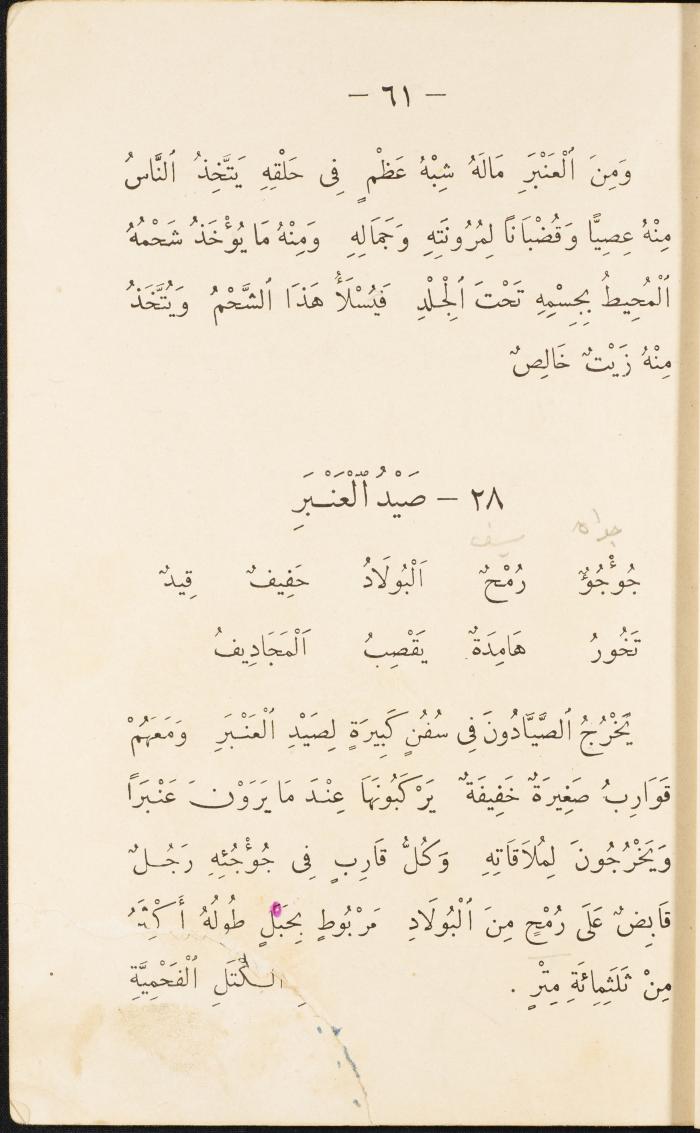 — ٦١ —
وَمِنَ ٱلْعَنْبَرِ مَالَهُ شِبْهُ عَظْمٍ فِى حَلْقِهِ يَتَّخِذُ ٱلنَّاسُ
مِنْهُ عِصِيًّا وَقُضْبَانًا لِمُرُونَتِهِ وَجَمَالِهِ وَمِنْهُ مَا يُؤْخَذُ شَحْمُهُ
ٱلْمُحِيطُ بِجِسْمِهِ تَحْتَ ٱلْجِلْدِ فَيُسْلَأُ هَذَا ٱلشَّحْمُ وَيُتَّخَذُ
مِنْهُ زَيْتٌ خَالِصٌ
٢٨ — صَيْدُ ٱلْعَنْبَرِ
جُؤْجُؤٌ رُمْحٌ اَلْبُولَادُ حَفِيفٌ قِيدٌ
تَخُورُ هَامِدَةٌ يَقْصِبُ اَلْمَجَادِيفُ
يَخْرُجُ ٱلصَّيَّادُونَ فِى سُفُنٍ كَبِيرَةٍ لِصَيْدِ ٱلْعَنْبَرِ وَمَعَهُمْ
قَوَارِبُ صَغِيرَةٌ خَفِيفَةٌ يَرْكَبُونَهَا عِنْدَ مَا يَرَوْنَ عَنْبَرًا
وَيَخْرُجُونَ لِمُلَاقَاتِهِ وَكُلُّ قَارِبٍ فِى جُؤْجُئِهِ رَجُلٌ
قَابِضٌ عَلَى رُمْحٍ مِنَ ٱلْبُولَادِ مَرْبُوطٍ بِحَبْلٍ طُولُهُ أَكْثَرُ
مِنْ ثَلَثِمِائَةِ مِتْرٍ . الكُتَلِ ٱلْفَحْمِيَّةِ